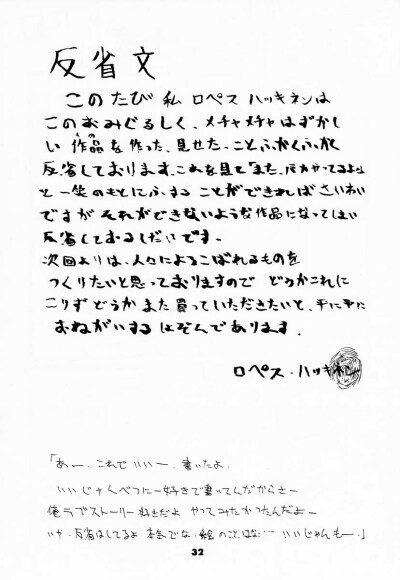 反省文
このたび私 ロペス ハッキネンは
このおみぐるしく、メチャメチャはずかし
い 作品を作った、見せた、ことふかくふかく
反省しております。これを見て「また、
と一笑のもとにふする ことができればさいわい
ですが それができないような作品になってしまい
反省しておるしだいです。
次回よりは、人々によろこばれるものを
つくりたいと思っておりますので どうかこれに
こりず どうか また 買っていただきたいと、平に平に
おねがいする しぞんであります.
ロペス・ハッキネン
「あー、これでいいー、書いたよ.
いいじゃんべつにー好きで書いてんだからさー
俺ラブストーリー好きだよ やってみたかったんだよー
いや、反省はしてるよ 本気でな、絵のことはな… いいじゃんもー.」
32